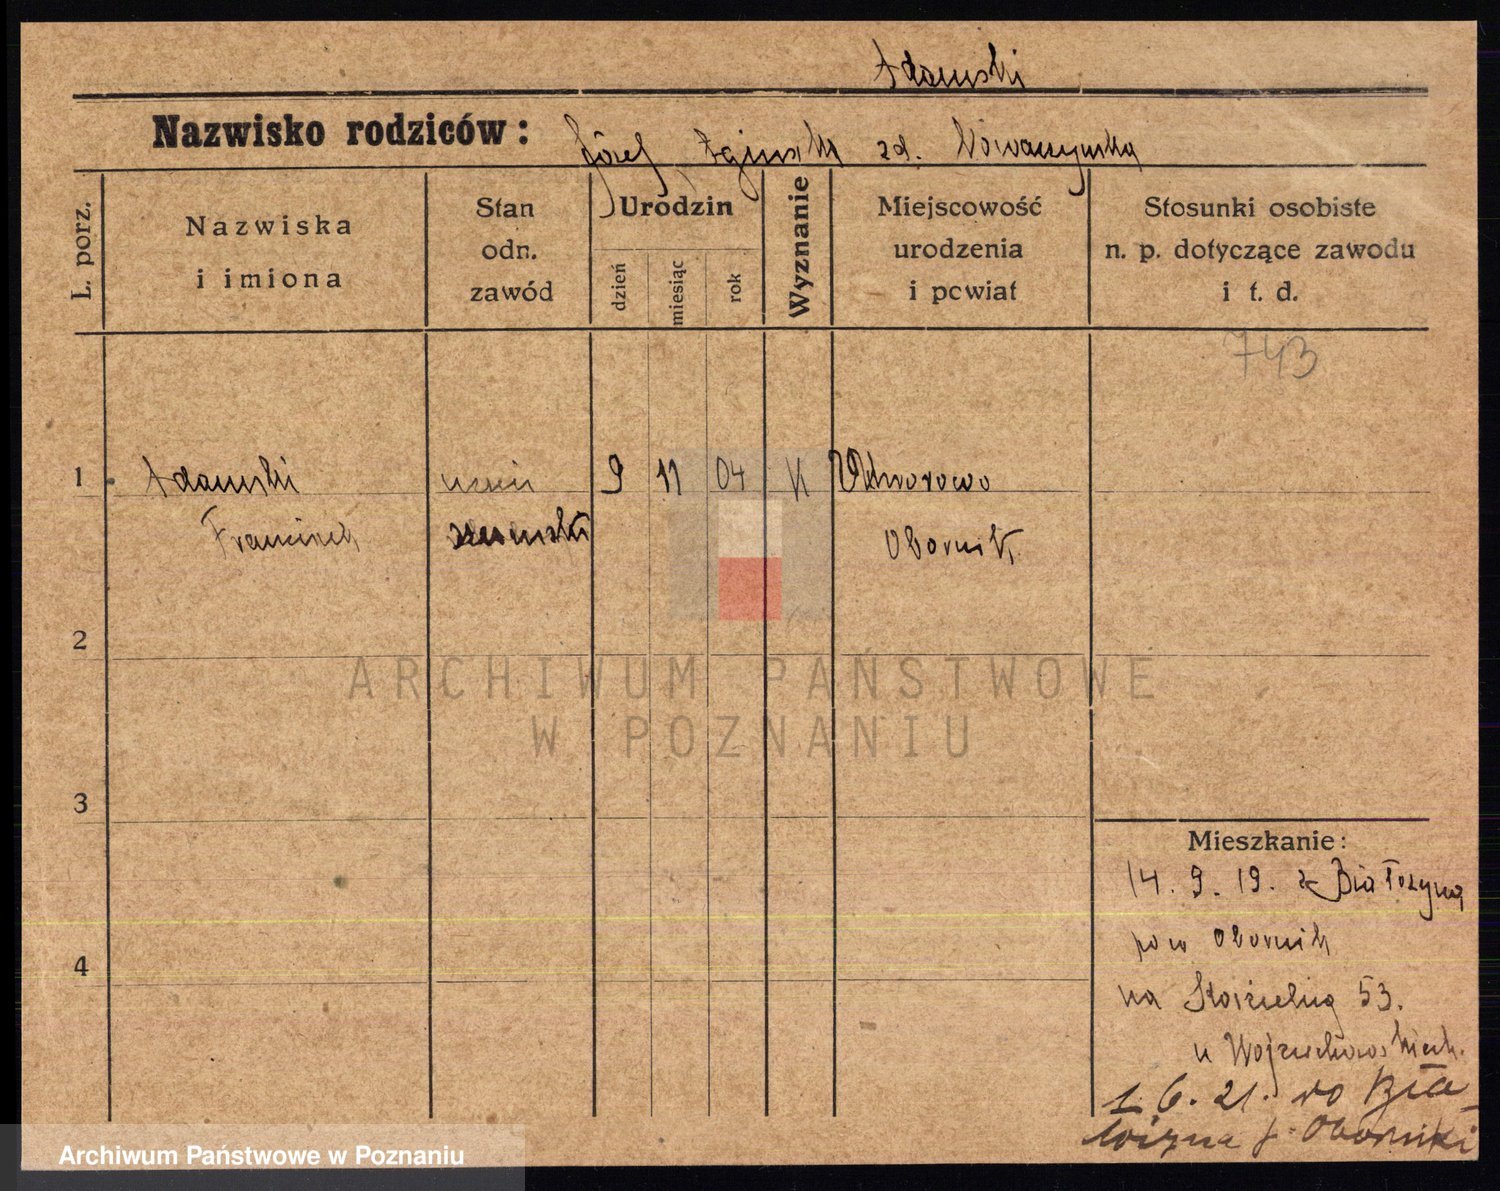 Adamski
Nazwisko rodziców: Józef Agnieszka zd. Nowaczyńska
L. porz.
Nazwiska
i imiona
Stan
odn.
zawód
Urodzin
dzień
miesiąc
rok
Wyznanie
Miejscowość
urodzenia
i powiat
Stosunki osobiste
n. p. dotyczące zawodu
i t. d.
743
1 Adamski uczeń 9 11 04 K
Franciszek
Obornik
2
ARCHIWUM PAŃSTWOWE
W POZNANIU
3
Mieszkanie:
14. 9. 19. z Białężyna
pow Obornik
4
na 53.
u Wojciechowskich.
1. 6. 21. do
p. Oborniki
Archiwum Państwowe w Poznaniu